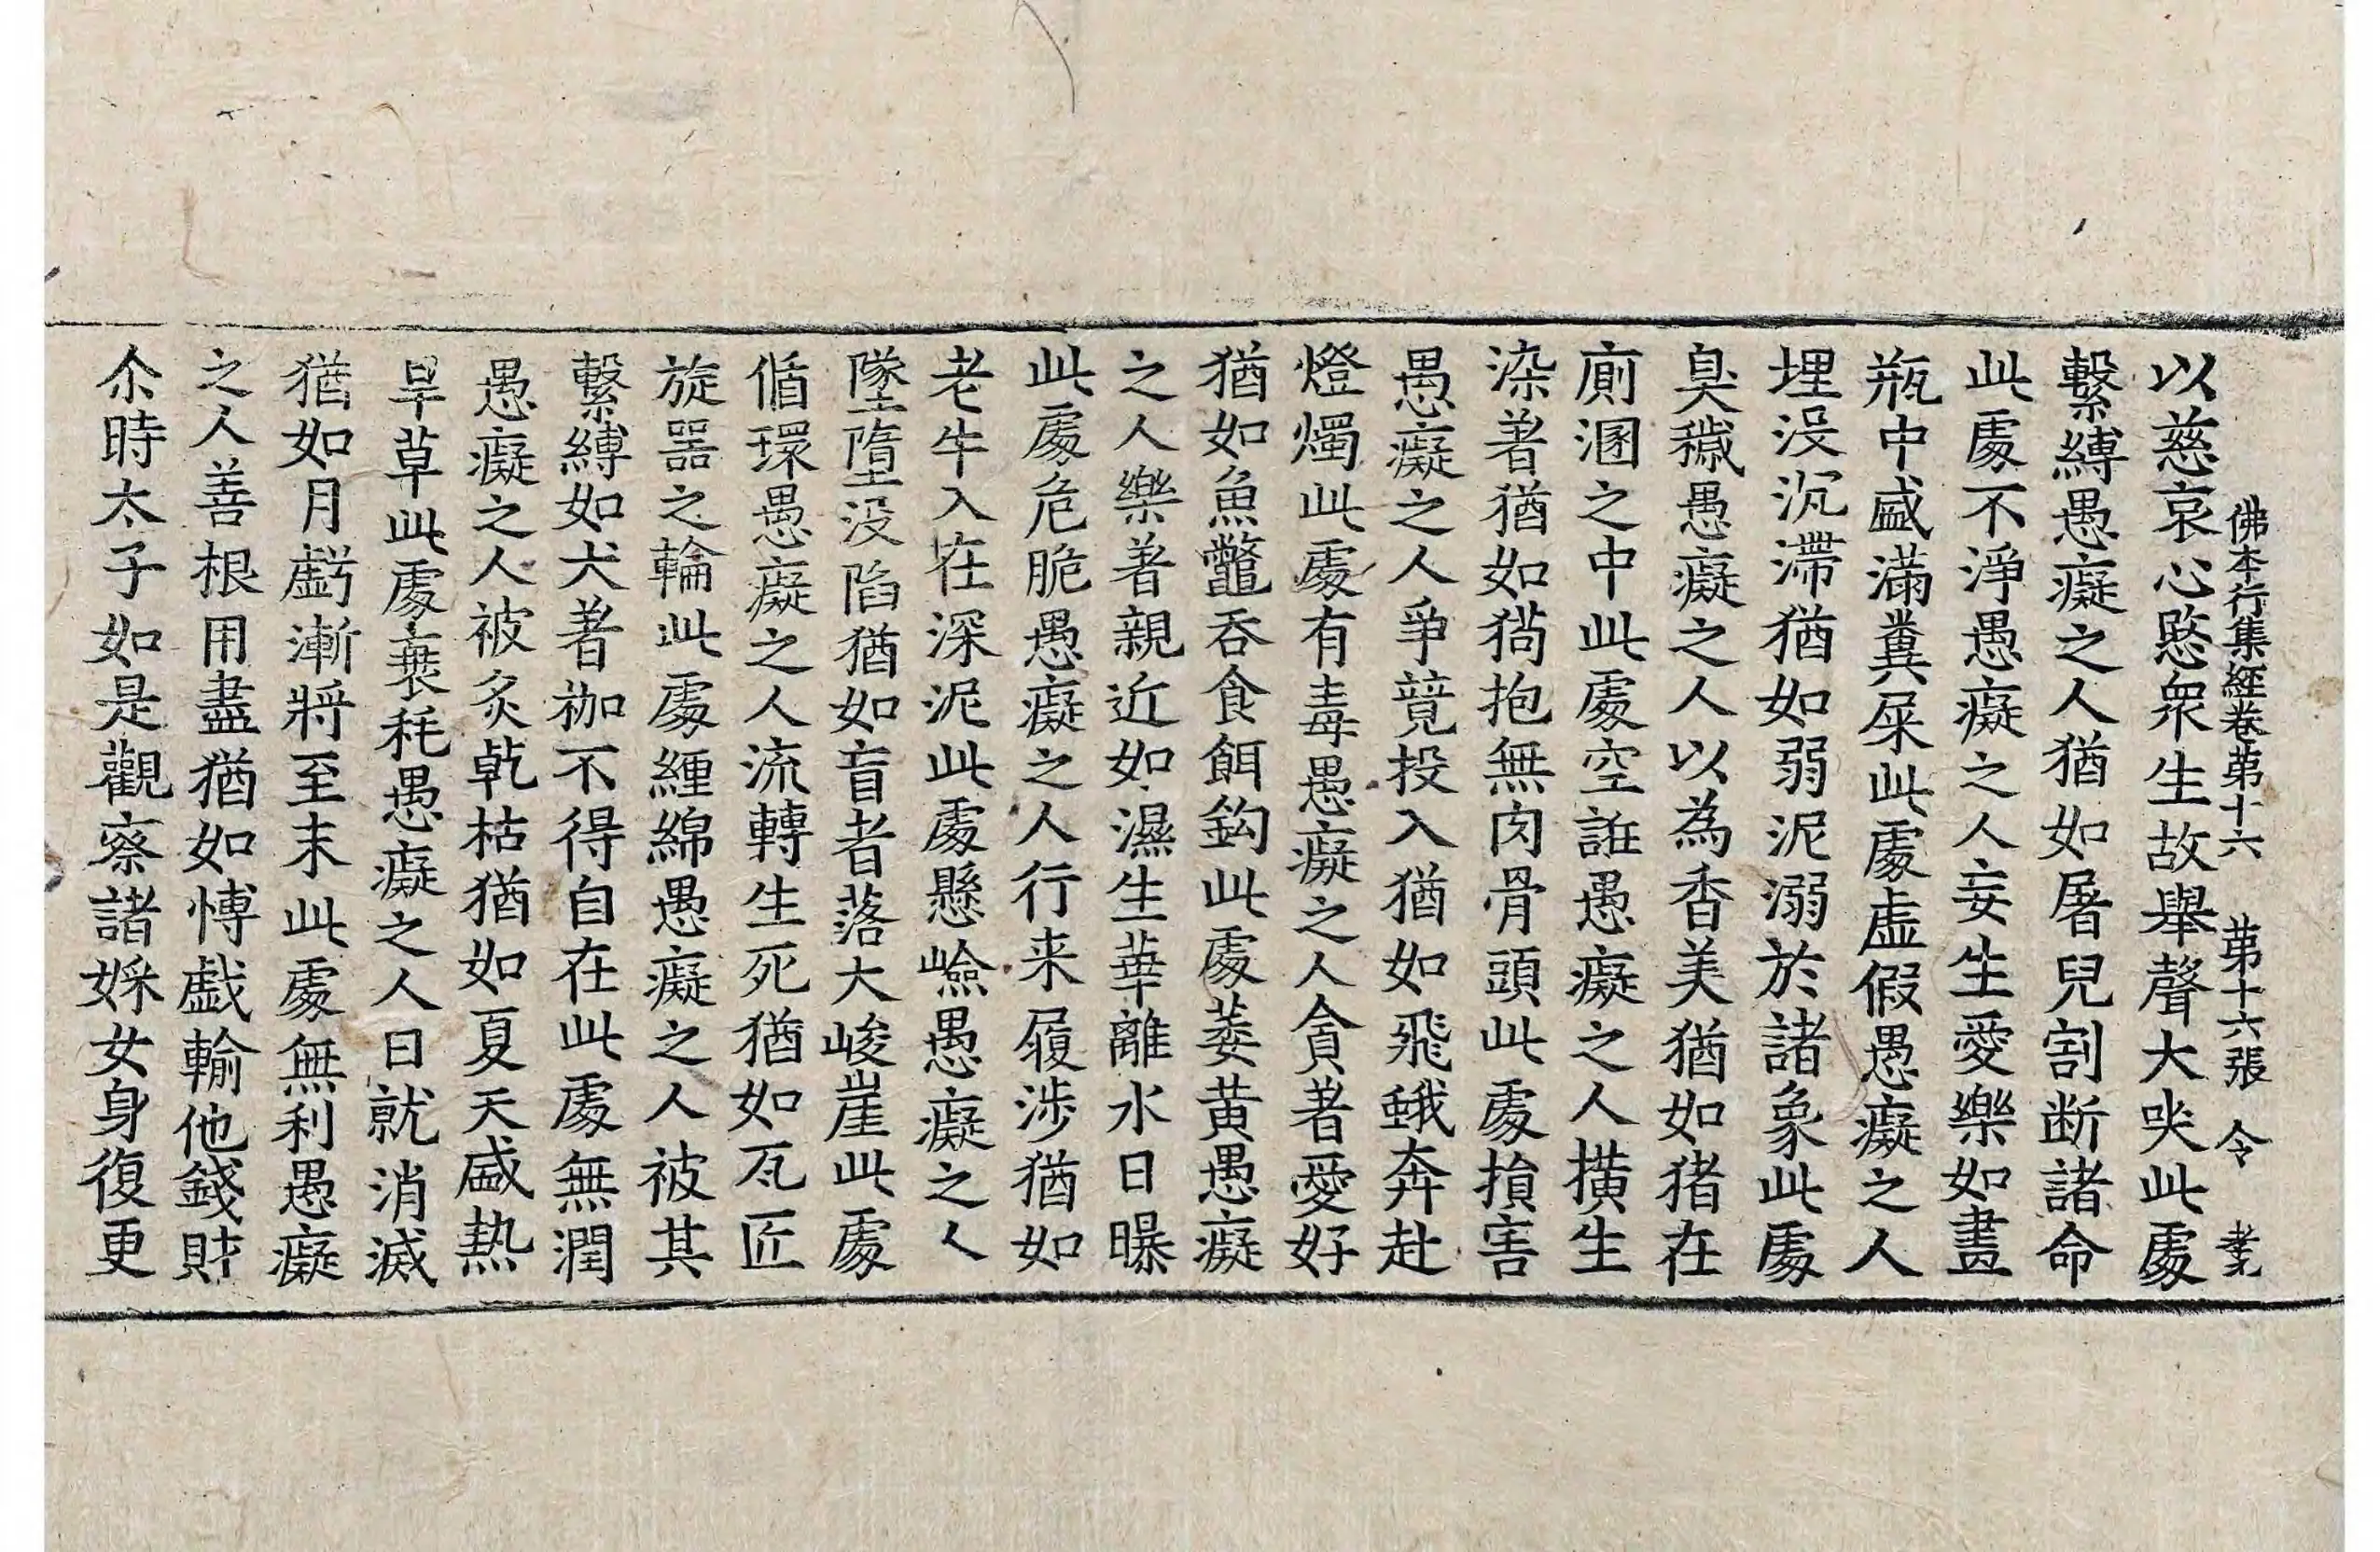 佛本行集經卷第十六　第十六張　令　孝光
以慈哀心愍衆生故舉聲大哭此處
繫縛愚癡之人猶如屠兒割断諸命
此處不淨愚癡之人妄生愛樂如畫
瓶中盛滿糞屎此處虛假愚癡之人
埋没沉滯猶如弱泥溺於諸象此處
臭穢愚癡之人以為香美猶如猪在
廁溷之中此處空誑愚癡之人横生
染著猶如猗抱無肉骨頭此處損害
愚癡之人爭競投入猶如飛蛾奔赴
燈燭此處有毒愚癡之人貪著愛好
猶如魚鼈吞食餌鈎此處萎黄愚癡
之人樂著親近如濕生華離水日曝
此處危脆愚癡之人行来履涉猶如
老牛入在深泥此處懸嶮愚癡之人
墜墮没陷猶如盲者落大峻崖此處
循環愚癡之人流轉生死猶如瓦匠
旋器之輪此處緾綿愚癡之人被其
繫縛如犬著枷不得自在此處無潤
愚癡之人被炙乾枯猶如夏天盛熱
旱草此處衰秏愚癡之人日就消滅
猶如月虧漸將至末此處無利愚癡
之人善根用盡猶如慱戯輸他錢財
尒時太子如是觀察諸婇女身復更